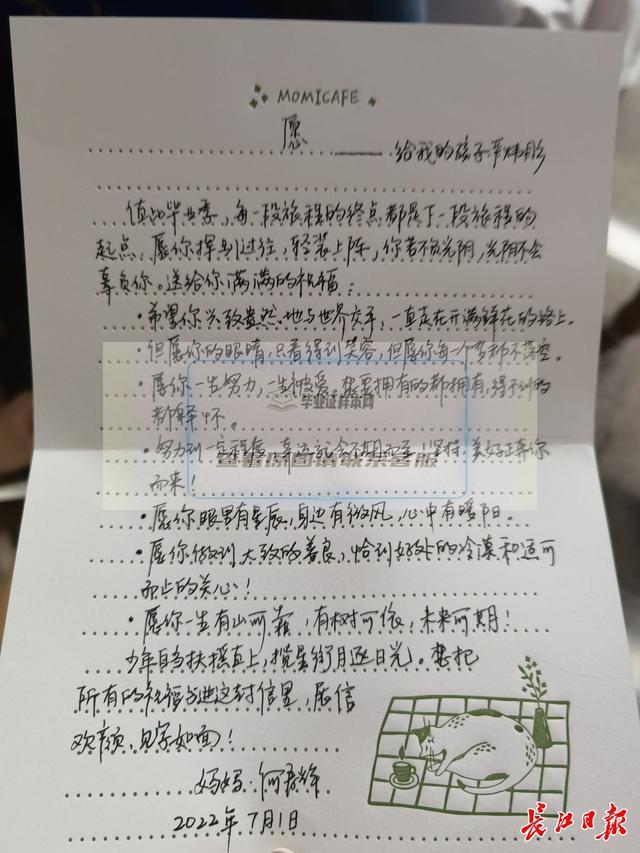 MOMICAFE
愿
——给我的孩子
值此毕业季,每一段旅程的终点都是下一段旅程的
起点,愿你挥别过往,轻装上阵,你若不负光阴,光阴不会
辜负你。送给你满满的祝福:
·希望你兴致盎然地与世界交手,一直走在开满鲜花的路上。
·但愿你的眼睛,只看得到笑容,但愿你每一个梦都不落空。
·愿你一生努力,一生被爱,想要拥有的都拥有,得不到的
都释怀。
毕业证样本网
·努力到一定程度,幸运就会不期而至!坚持,美好正奔你
查看原图请联系客服
而来!
·愿你眼里有星辰,身边有微风,心中有暖阳。
·愿你做到大致的善良,恰到好处的冷漠和适可
而止的关心!
·愿你一生有山可靠,有树可依,未来可期!
少年自当扶摇直上,揽星衔月逐日光。想把
所有的祝福书进这封信里,展信
欢颜,见字如面!
妈妈
2022年7月1日
长江日报